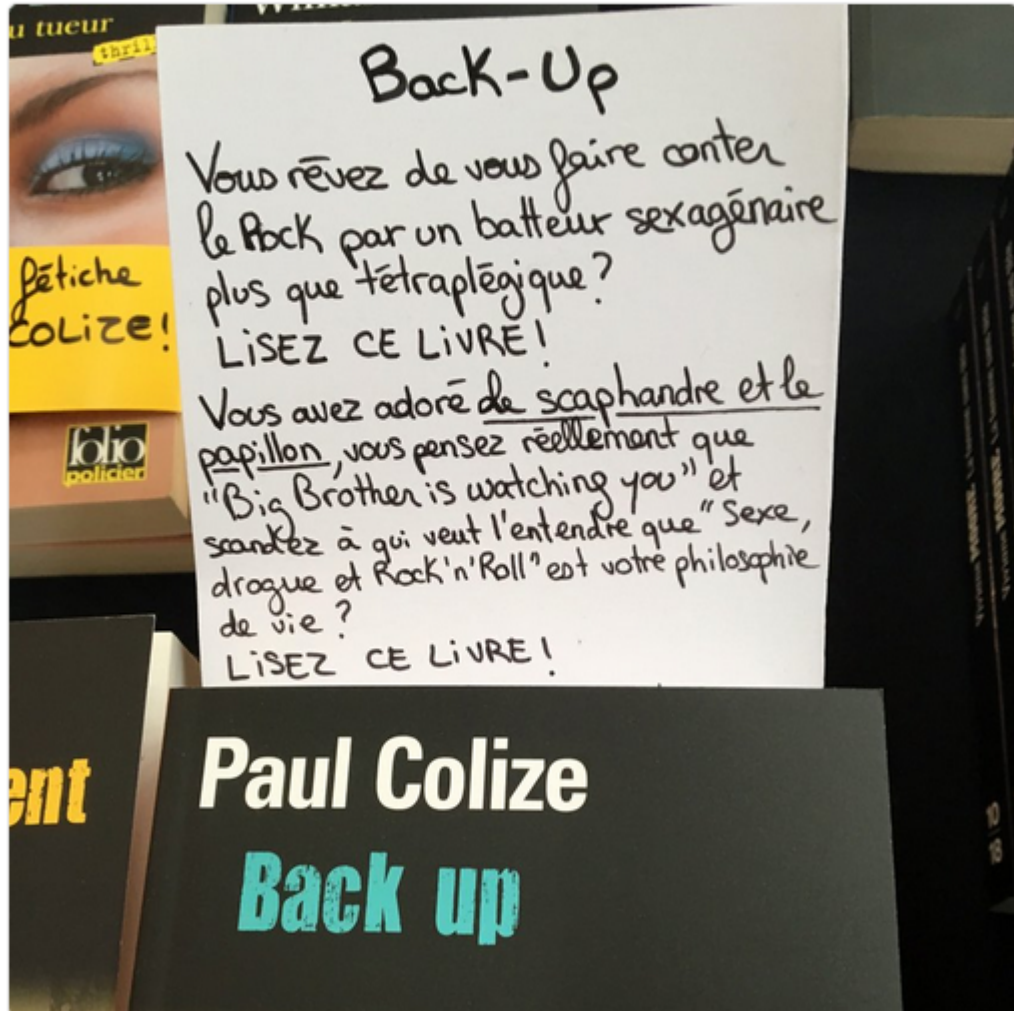 u tueur
thrill
Back-Up
Vous rêvez de vous faire conter
le Rock par un batteur sexagénaire
plus que tétraplégique?
LISEZ CE LIVRE!
Vous avez adoré le scaphandre et le
papillon, vous pensez réellement que
"Big Brother is watching you" et
scandez à qui veut l'entendre que "Sexe,
drogue et Rock'n'Roll" est votre philosophie
de vie ?
LISEZ CE LIVRE!
fétiche
COLIZE!
folio
policier
ent
Paul Colize
Back up
10|18